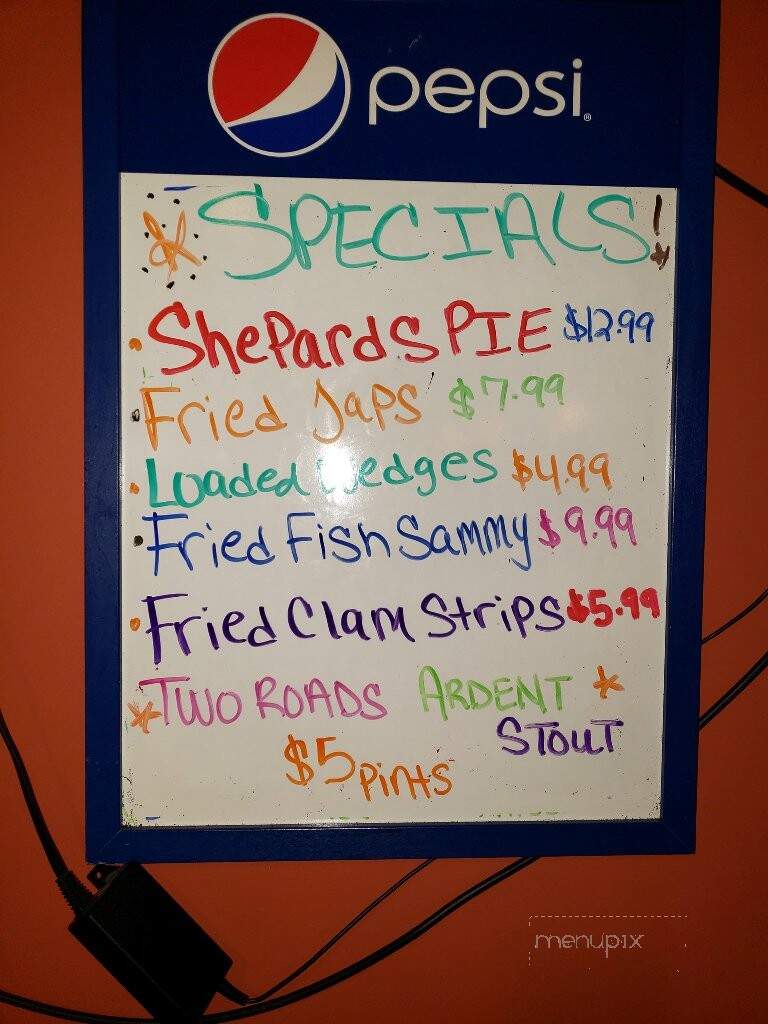 pepsi®
SPECIALS!
• Shepards PIE $12.99
• Fried Japs $7.99
• Loaded Wedges $4.99
• Fried Fish Sammy $9.99
• Fried Clam Strips $5.99
* TWO ROADS ARDENT *
STOUT
$5 Pints
menupix